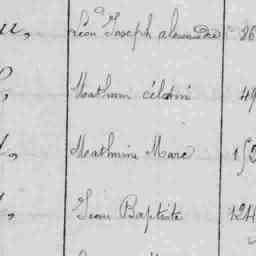 Léon Joseph alexandre 26
Mathurin célestin 49
Mathurine Marc
Jean Baptiste 124